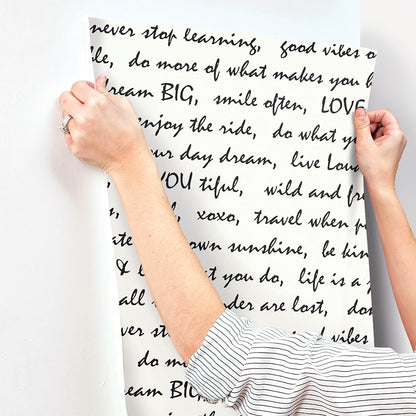 never stop learning, good vibes o
ble, do more of what makes you h
dream BIG, smile often, LOVE
enjoy the ride, do what yo
ur day dream, live Loud
YOU tiful, wild and fr
xoxo, travel when
own sunshine, be kin
& l at you do, life is a
all der are lost, don
ver stop d vibes
do m
eam BIG